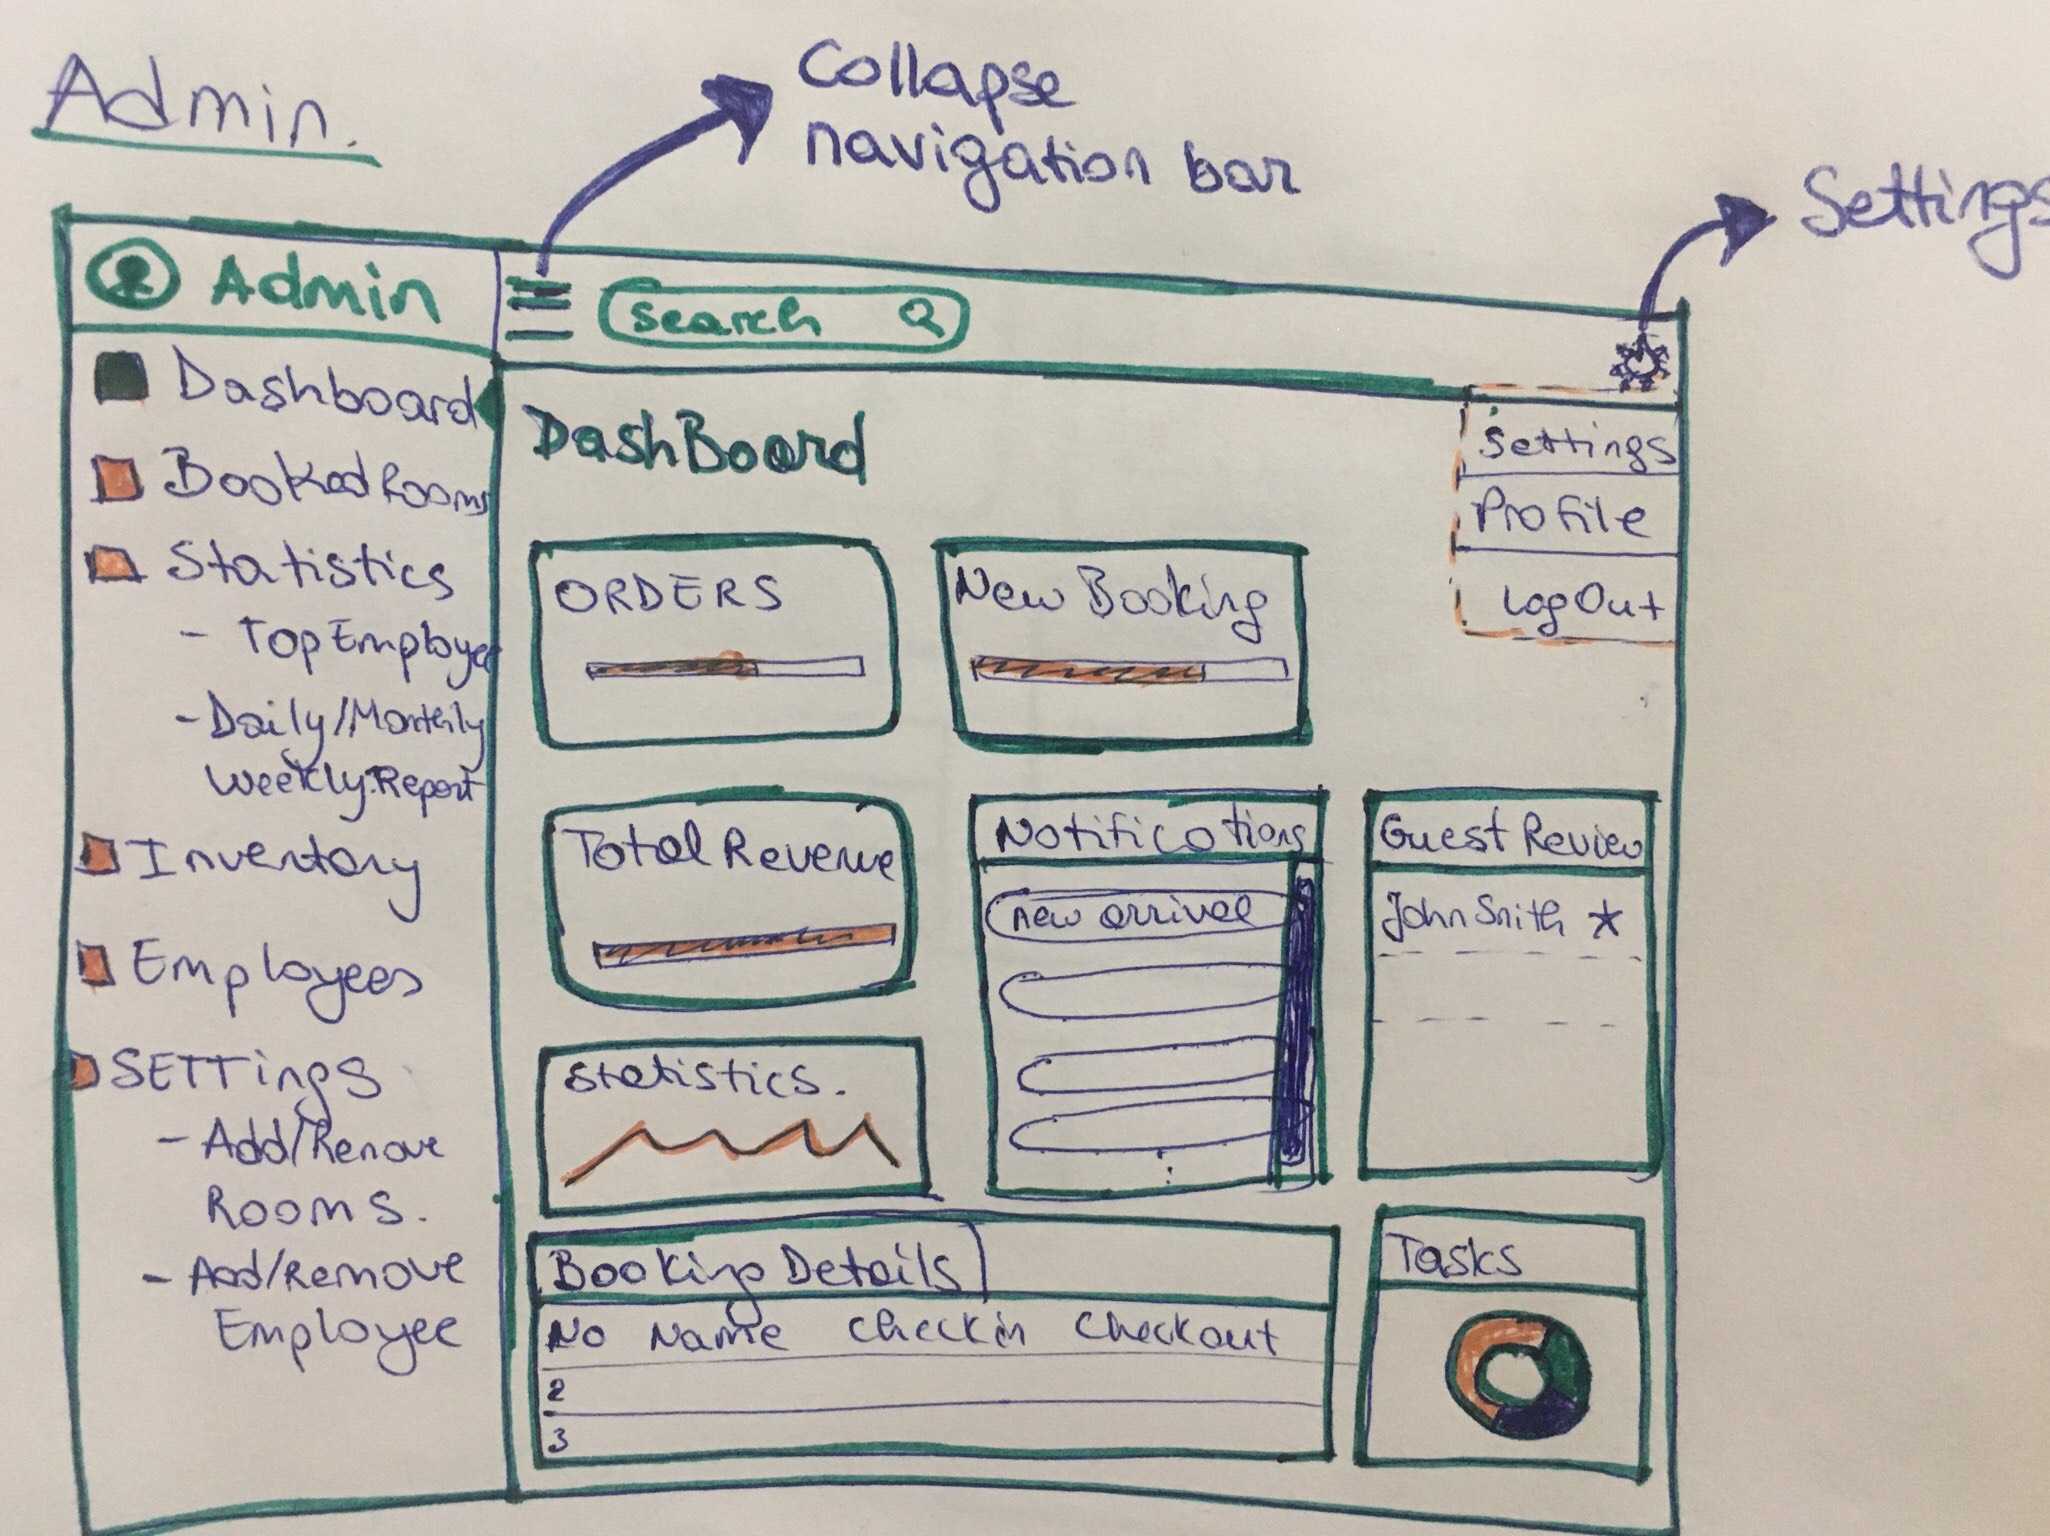 Admin.
Collapse
navigation bar
Settings
Admin
Search
Dashboard
Booked Rooms
Statistics
- Top Employee
- Daily/Monthly
Weekly Report
Inventory
Employees
SETTings
- Add/Remove
Rooms.
- Add/Remove
Employee
DashBoard
Settings
Profile
LogOut
ORDERS
New Booking
Total Revenue
Notifications
new arrival
Guest Review
John Smith
Statistics.
Booking Details
No Name Checkin Checkout
2
3
Tasks